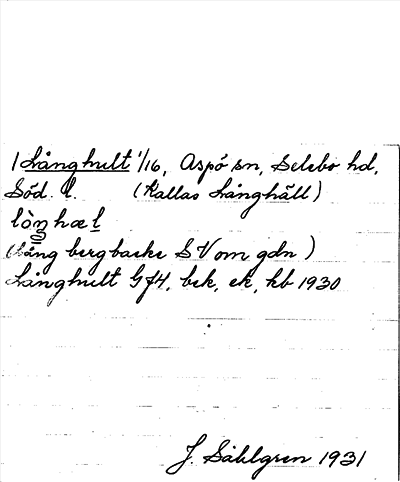 1 Långhult 1/16, Aspö sn, Selebo hd,
Söd. l. (Kallas Långhäll)
lòŋhæl
(Lång bergbacke SV om gdn)
Långhult GJ4, bek, ek, hb 1930
J. Sahlgren 1931